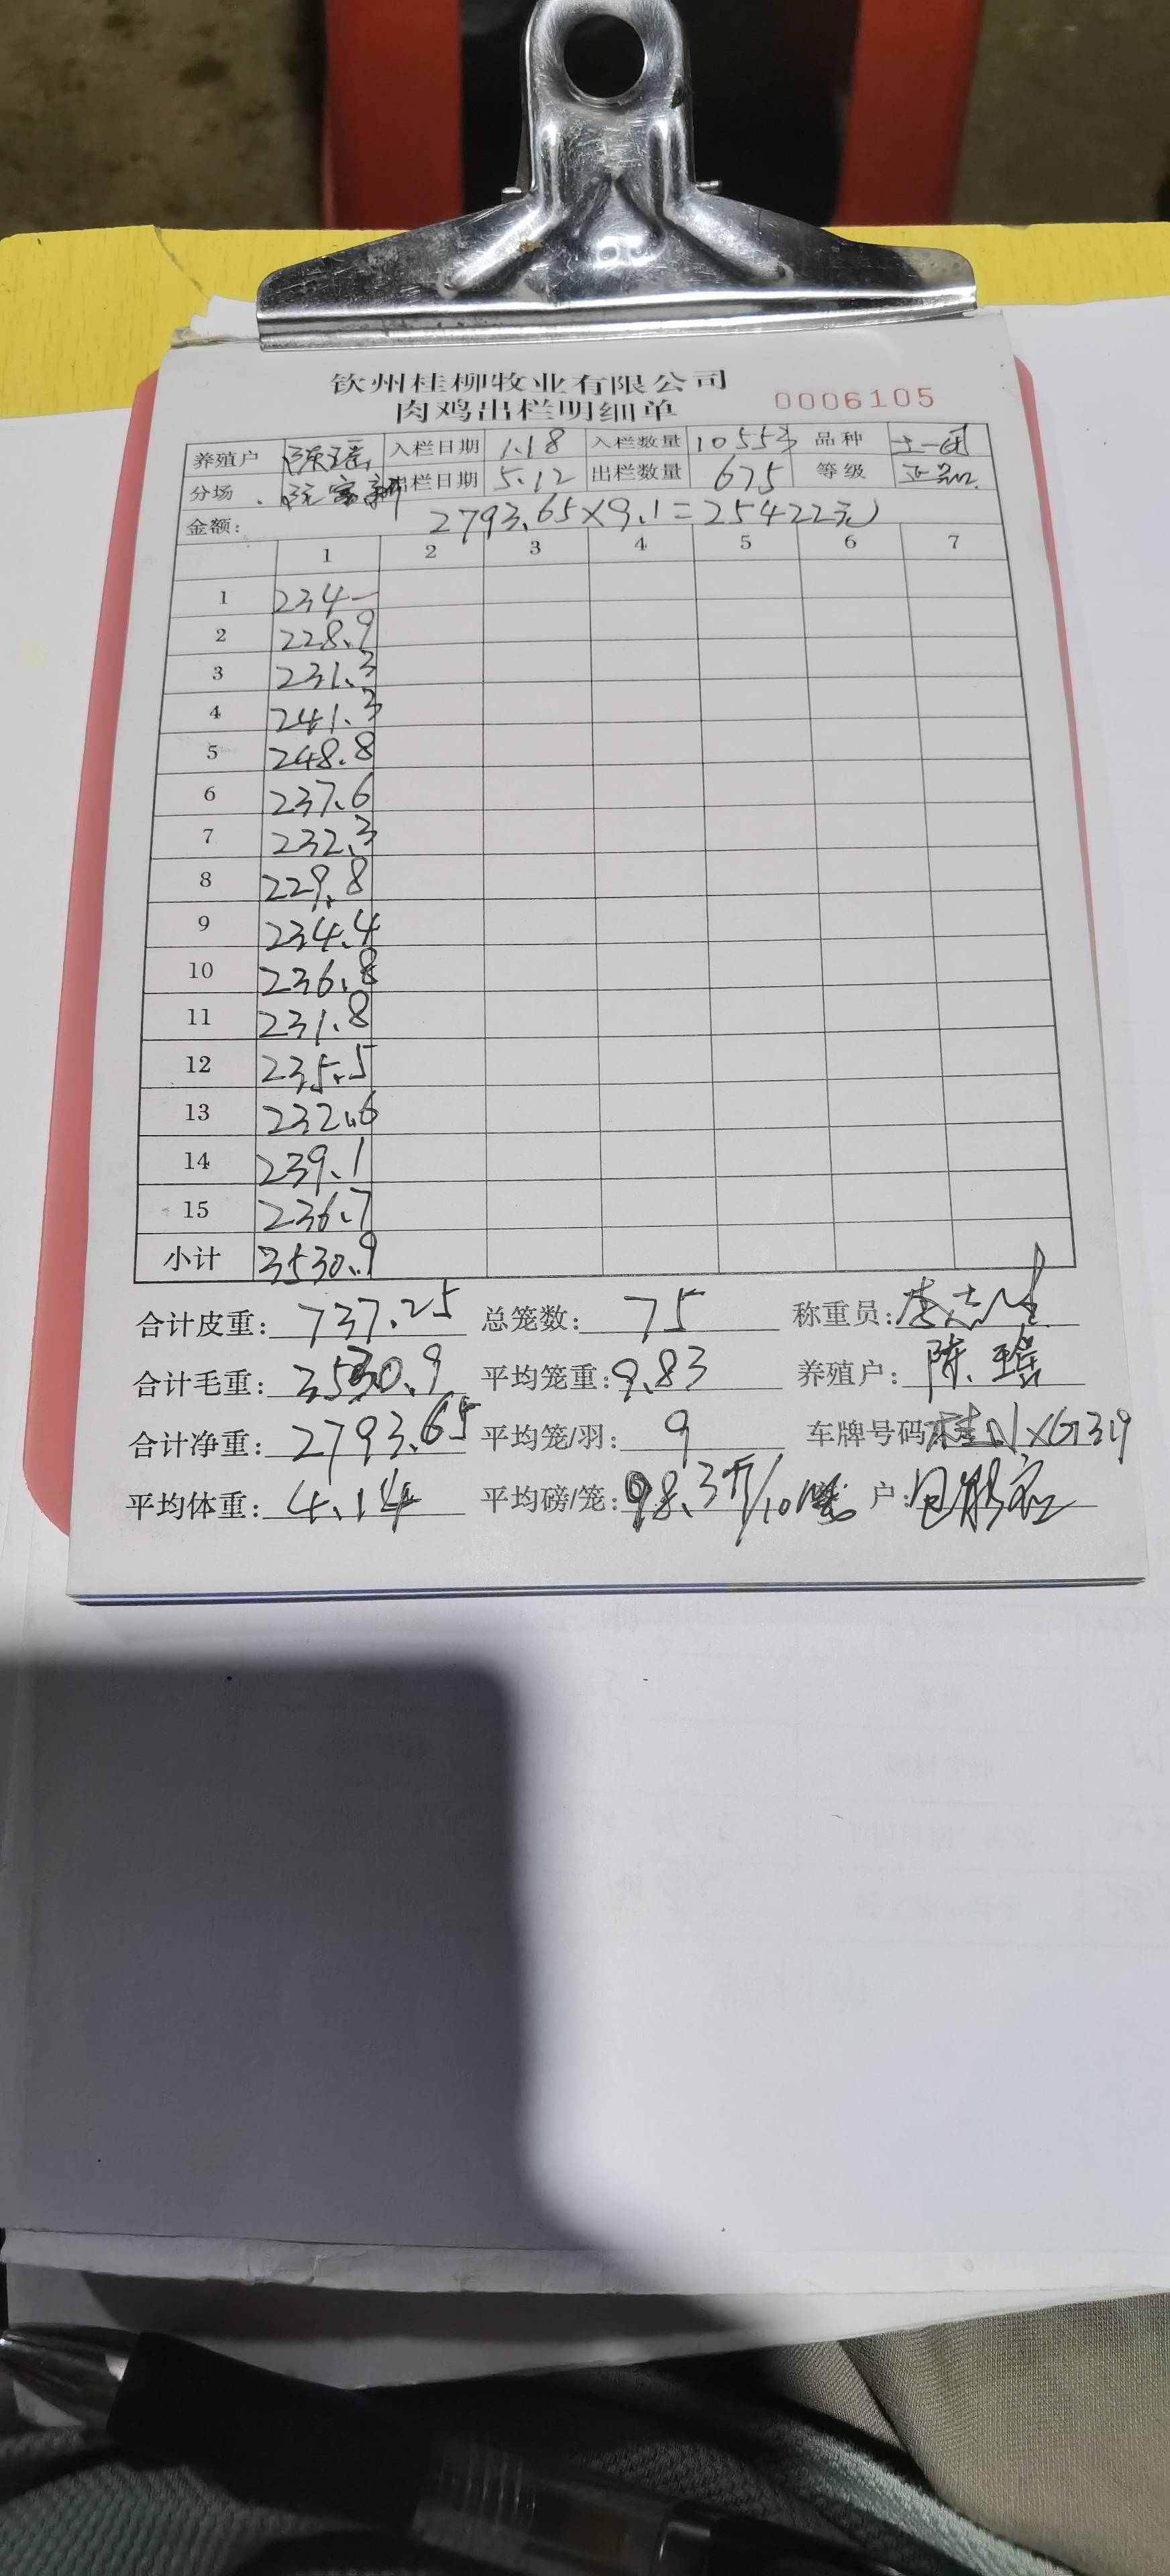 钦州桂柳牧业有限公司
肉鸡出栏明细单 0006105
养殖户 陈瑶 入栏日期 1.18 入栏数量 10553 品种 土一
分场 阮富新 出栏日期 5.12 出栏数量 675 等级 正品
金额: 2793.65×9.1=25422元
1 2 3 4 5 6 7
1 234-
2 228.9
3 231.3
4 241.3
5 248.8
6 237.6
7 232.3
8 229.8
9 234.4
10 236.8
11 231.8
12 235.5
13 232.6
14 239.1
15 236.7
小计 3530.9
合计皮重: 737.25 总笼数: 75 称重员: 李
合计毛重: 3530.9 平均笼重: 9.83 养殖户: 陈瑶
合计净重: 2793.65 平均笼/羽: 9 车牌号码 桂NXG319
平均体重: 4.14 平均磅/笼: 98.3斤/10 户: